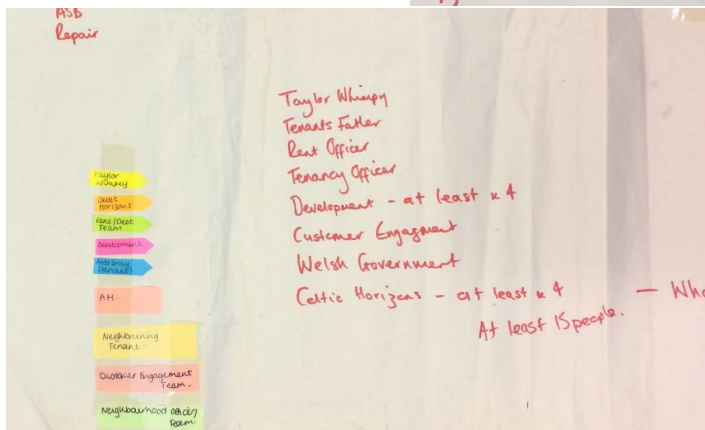 ASB
Repair
Taylor Whimpy
Tenants Father
Rent Officer
Tenancy Officer
Development - at least x 4
Customer Engagment
Welsh Government
Celtic Horizons - at least x 4
At least 15 people.
- Wh
Taylor
Wimpey
Celtic
Horizons
Rent/Debt
Team
Development
(tenant)
AH.
Neighbouring
Tenant.
Customer Engagement
Team.
Neighbourhood
Team.